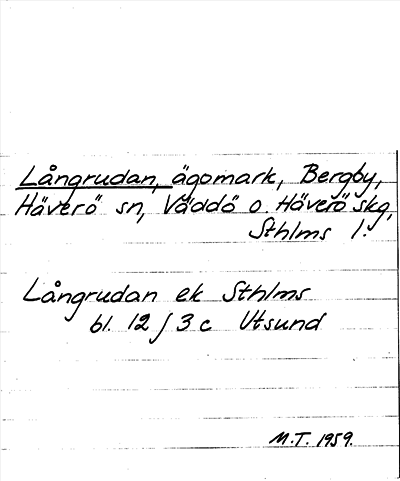 Långrudan, ägomark, Bergby,
Häverö sn, Väddö o. Häverö skg,
Sthlms l.
Långrudan ek Sthlms
bl. 12 / 3 c Utsund
M.T. 1959.